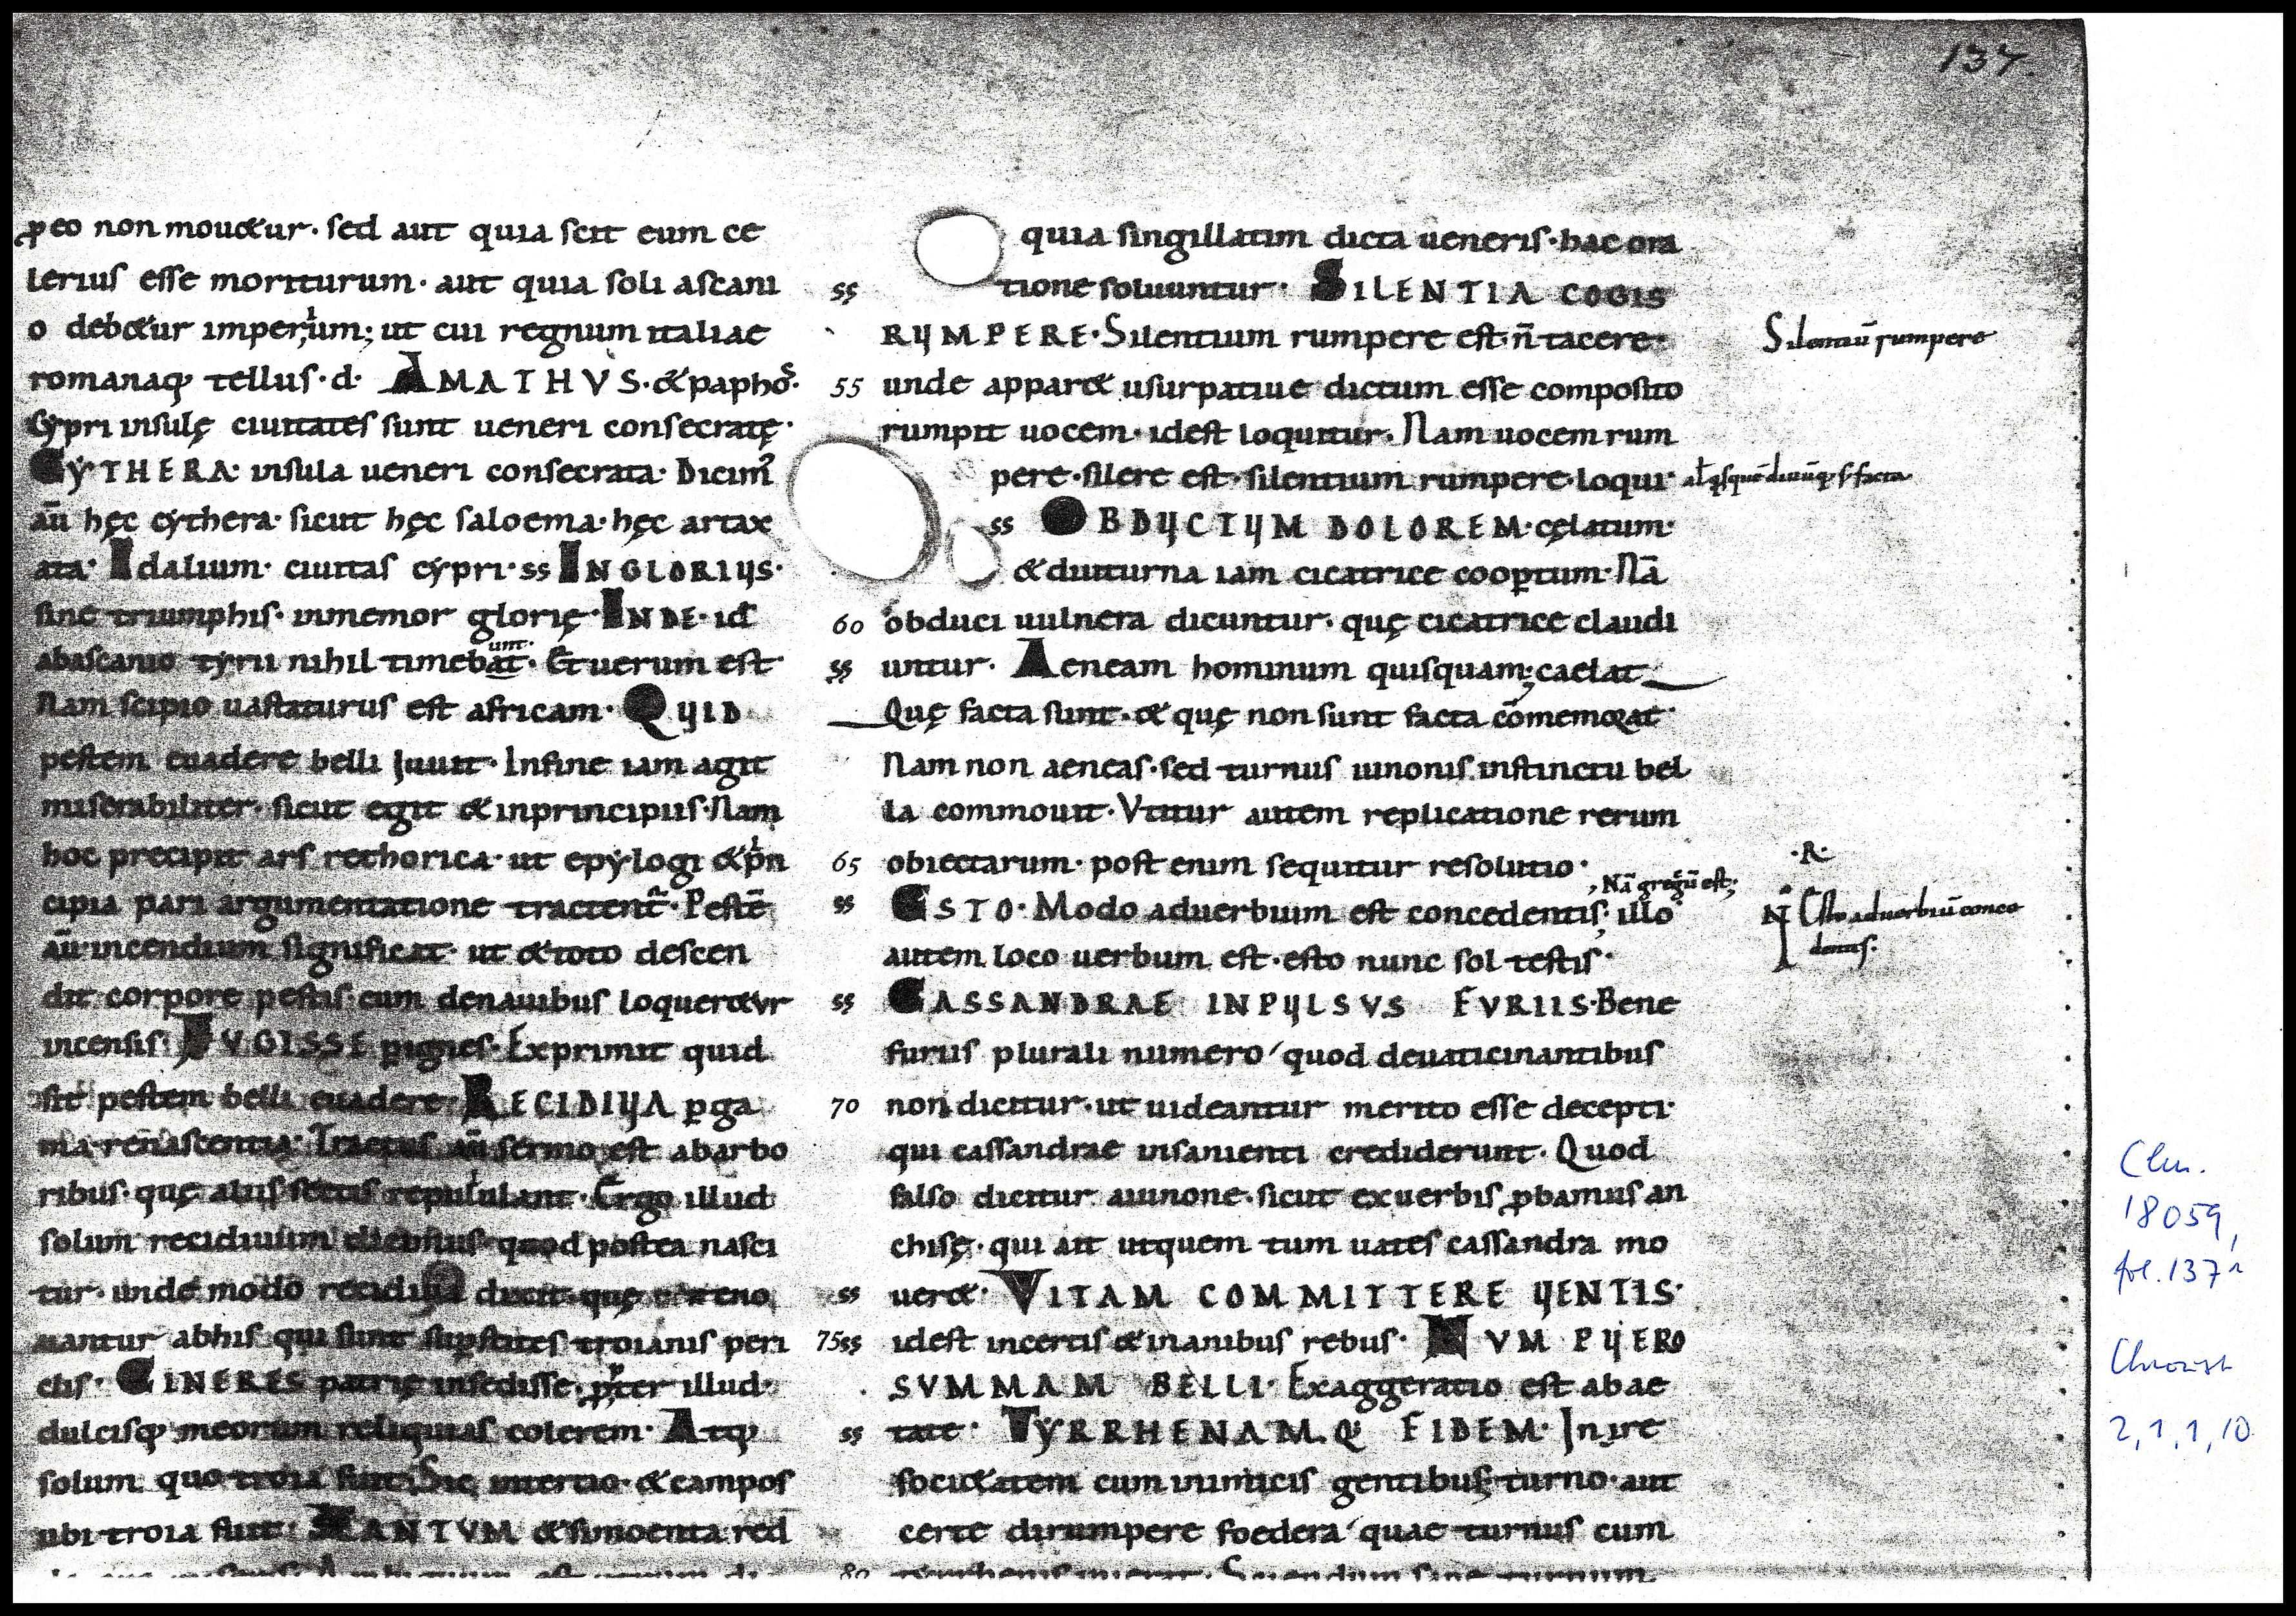 137.
ꝑeo non mouetur· sed aut quia scit eum ce
lerius esse moriturum· aut quia soli ascani
o debetur imperium; ut cui regnum italiae
romanaq; tellus·d· AMATHVS·& paphos·
Cypri insulę ciuitates sunt ueneri consecratę·
CYTHERA· insula ueneri consecrata· Dicim̄
aū hęc cythera· sicut hęc saloema· hęc artax
ata· Idalium· ciuitas cypri· ss INGLORIUS·
sine triumphis· inmemor glorię· INDE· id
abascanio tyrii nihil timebat unt· Et uerum est·
Nam scipio uastaturus est africam· QUID
pestem euadere belli Juuit· Infine iam agit
miserabiliter· sicut egit & inprincipiis· Nam
hoc precipit ars rethorica· ut epylogi & pⁱn
cipia pari argumentatione tractent̄· Pestē
aū incendium significat· ut & toto descen
dit corpore pestis· cum denauibus loqueretur
incensis· FVGISSE ꝑignes· Exprimit quid
sit pestem belli euadere· RECIDIUA ꝑga
ma· renascentia· Tractus aū sermo est abarbo
ribus· quę aliis sectis repullulant· Ergo illud
solum recidiuum dicimus quod postea nasci
tur· unde modo recidiua dicit quę
nantur abhis qui sunt suꝑstites troianis peri
clis· CINERES patrię insedisse· ꝓpter illud·
dulcisq; meorum reliquias colerem· Atq;
solum quo troia fuit· Sic intertio· & campos
ubi troia fuit· XANTVM & simoenta red
quia singillatim dicta ueneris· hac ora
ss tione soluuntur· SILENTIA COGIS
RUMPERE· Silentium rumpere est· ñ tacere·
Silentiū rumpere
55 unde apparet usurpatiue dictum esse composito
rumpit uocem· idest loquitur· Nam uocem rum
pere· silere est· silentium rumpere· loqui·
ss OBDUCTUM DOLOREM· cęlatum·
& diuturna iam cicatrice cooꝑtum· Nā
60 obduci uulnera dicuntur· quę cicatrice claudi
ss untur· Aeneam hominum quisquam; caelat
Quę facta sunt· & quę non sunt facta cōmemorat·
Nam non aeneas· sed turnus iunonis instinctu bel
la commouit· Vtitur autem replicatione rerum
65 obiectarum· post enim sequitur resolutio·
·R·
, Nā gregū est;
ss ESTO· Modo aduerbium est concedentis; illo
N Esto aduerbiū conce
dentis·
autem loco uerbum est· esto nunc sol testis·
ss CASSANDRAE INPULSVS FVRIIS· Bene
furiis plurali numero quod deuaticinantibus
70 non dicitur· ut uideantur merito esse decepti·
qui cassandrae insanienti crediderunt· Quod
falso dicitur aiunone· sicut exuerbis ꝓbamus an
chisę· qui ait utquem tum uates cassandra mo
ss ueret· VITAM COMMITTERE UENTIS·
75 ss idest incertis & inanibus rebus· NVM PUERO
SVMMAM BELLI· Exaggeratio est abae
ss tate· TYRRHENAM.Q; FIDEM· Inire
societatem cum inimicis gentibus; turno· aut
certe dirumpere foedera quae turnus cum
80
Clm.
18059,
fol. 137r
Chroust
2, 1, 1, 10